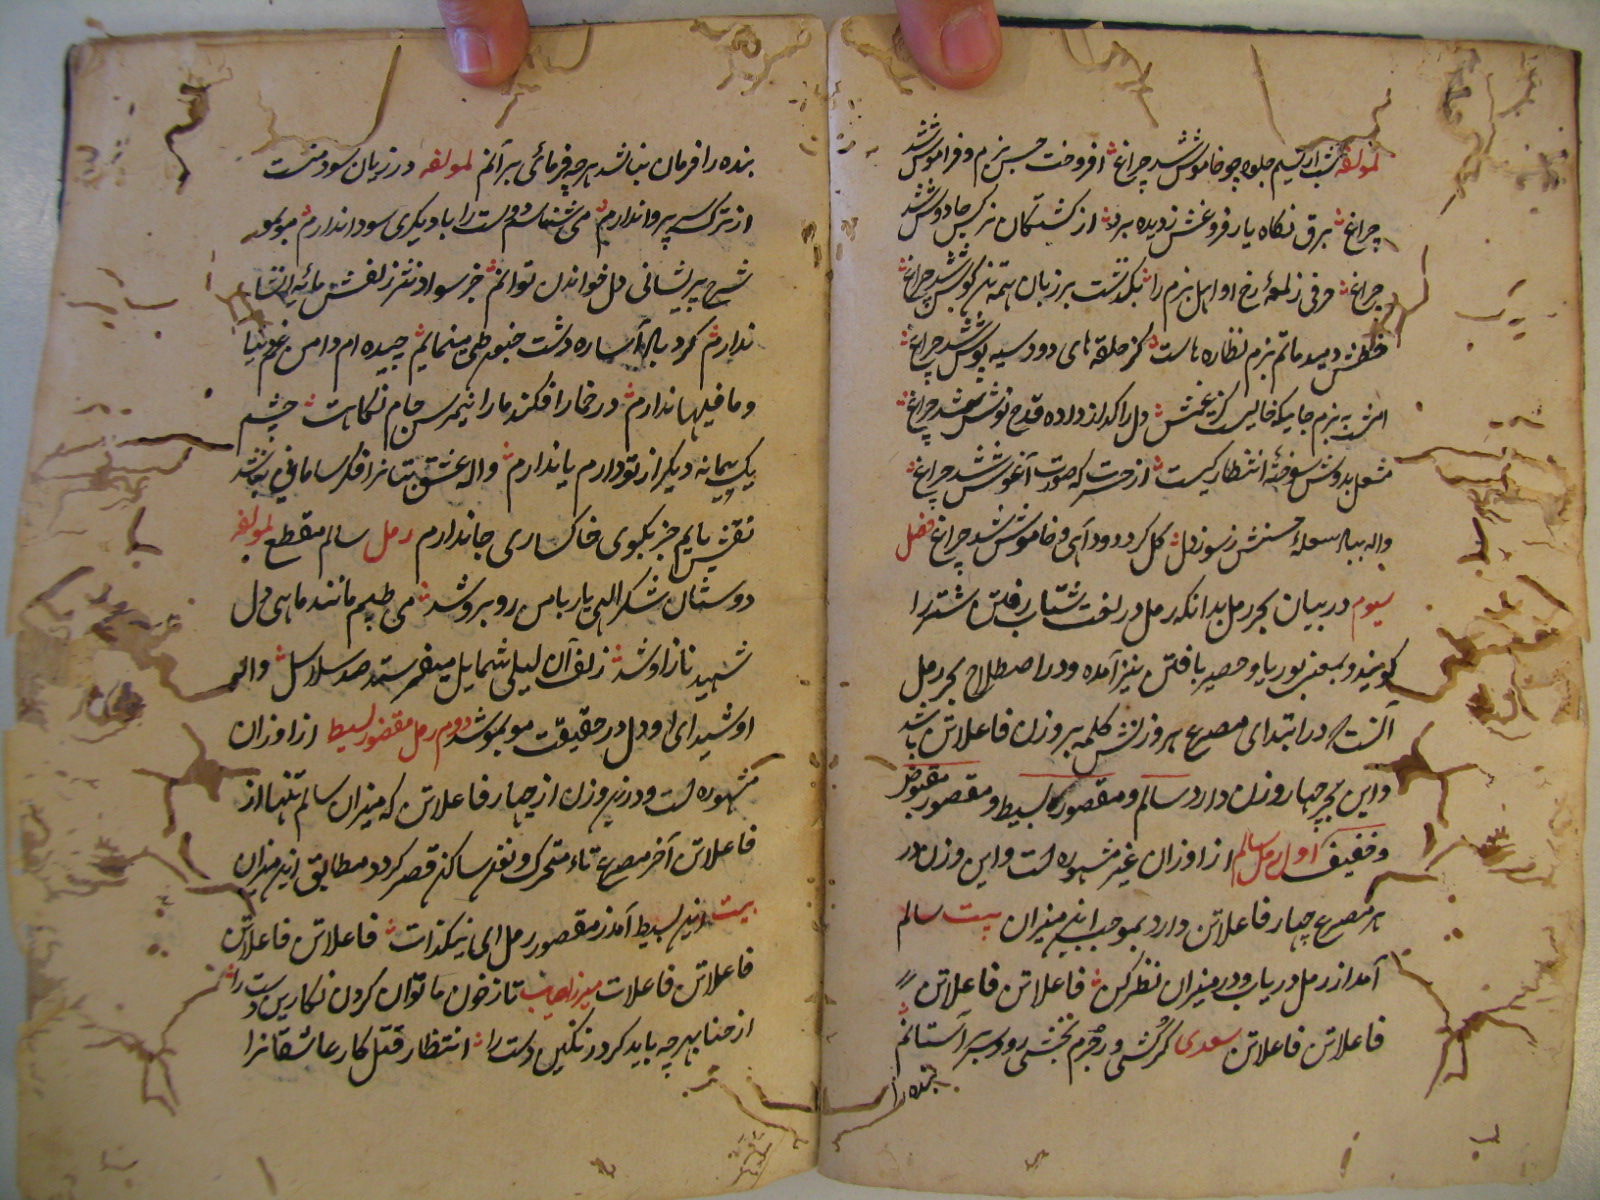 لمولفه شب از نسیم جلوه چو خاموش شد چراغ افروخت حسن بزم و فراموش شد
چراغ برق نگاه یار فروغش ز دیده برد از کشتگان نرگس جادوش شد
چراغ حرفی ز لمعهٔ رخ او اهل بزم را بگذشت بر زبان همه تن گوش شد چراغ
خطش دمید ماتم بزم نظاره هاست کز حلقه های دود سیه پوش شد چراغ
امشب به بزم جاییکه خالیست کز غمش دل را گداز داده قدح نوش شد چراغ
مشعل بدوش سوختهٔ انتظار کیست از حسرت که صورت آغوش شد چراغ
واله بیاد شعلهٔ حسنش ز سوز دل گل کرد دود آهی و خاموش شد چراغ فصل
سیوم در بیان بحر رمل بدانکه رمل در لغت شتاب رفتن شتر را
گویند و بمعنی بوریا و حصیر بافتن نیز آمده و در اصطلاح بحر رمل
آنست که در ابتدای مصرع هر وزنش کلمه بر وزن فاعلاتن باشد
و این بحر چهار وزن دارد سالم و مقصور بسیط و مقصور مقبوض
و خفیف اول رمل سالم از اوزان غیر مشهوره است و این وزن در
هر مصرع چهار فاعلاتن دارد بموجب این میزان بیت سالم
آمد از رمل دریاب و در میزان نظر کن فاعلاتن فاعلاتن
فاعلاتن فاعلاتن سعدی گر کشی ور جرم بخشی روی و سر بر آستانم
بنده را
بنده را فرمان نباشد هرچه فرمائی بر آنم لمولفه در زیان سود منست
از ترک سر پروا ندارم می شناسم دوست را با دیگری سودا ندارم مو بمو
شرح پریشانی دل خواندن توانم جز سواد نثر زلفش مایه انشا
ندارم گرد باد آساره دشت جنون طی مینمایم چیده ام دامن غم دنیا
و مافیها ندارم در خمار افکند ما را نیمرس جام نگاهت چشم
یک پیمانه دیگر از تو دارم یا ندارم واله عشق بتانرا فکر سامانی نباشد
نقش پایم جز بکوی خاکساری جا ندارم رمل سالم مقطع لمولفه
دوستان شکر الهی یار با من روبرو شد می طپم مانند ماهی دل
شهید ناز او شد زلف آن لیلی شمایل میفرستد صد سلاسل واله
او شیدای او دل در حقیقت مو بمو شد دوم رمل مقصور بسیط از اوزان
مشهوره است و درین وزن از چهار فاعلاتن که میزان سالم تنها از
فاعلاتن آخر مصرع تاء متحرک و نون ساکن قصر کردد مطابق این میزان
بیت این بسیط آمد ز مقصور رمل ای نیکذات فاعلاتن فاعلاتن
فاعلاتن فاعلات میرزا صایب تا ز خون ما توان کردن نگارین دست را
از حنا بهر چه باید کرد رنگین دست را انتظار قتل کار عاشقانرا